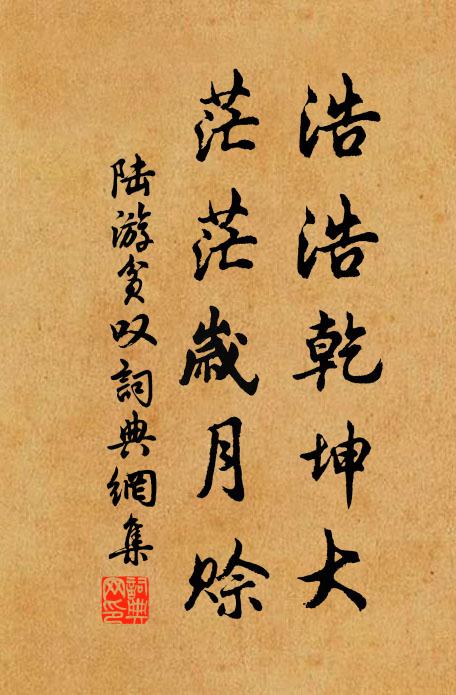 浩浩乾坤大
茫茫歲月賒
陆游貧叹詞典網集
詞典網印